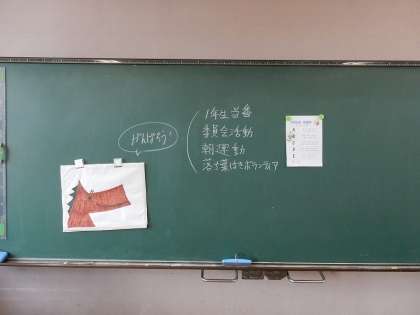 がんばろう!
1年生当番
委員会活動
朝運動
落ち葉はきボランティア